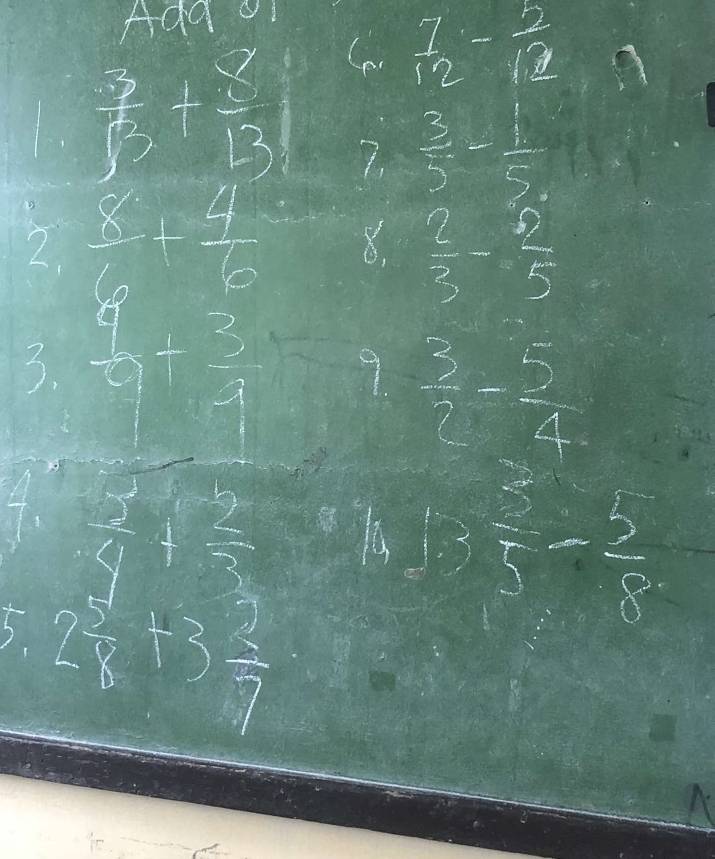 Add or
1. 3/13 + 8/13
2. 8/6 + 4/6
3. 4/9 + 3/9
4. 3/4 + 2/3
5. 2 5/8 + 3 2/7
6. 7/12 - 5/12
7. 3/5 - 1/5
8. 2/3 - 2/5
9. 3/2 - 5/4
10. 13 3/5 - 5/8